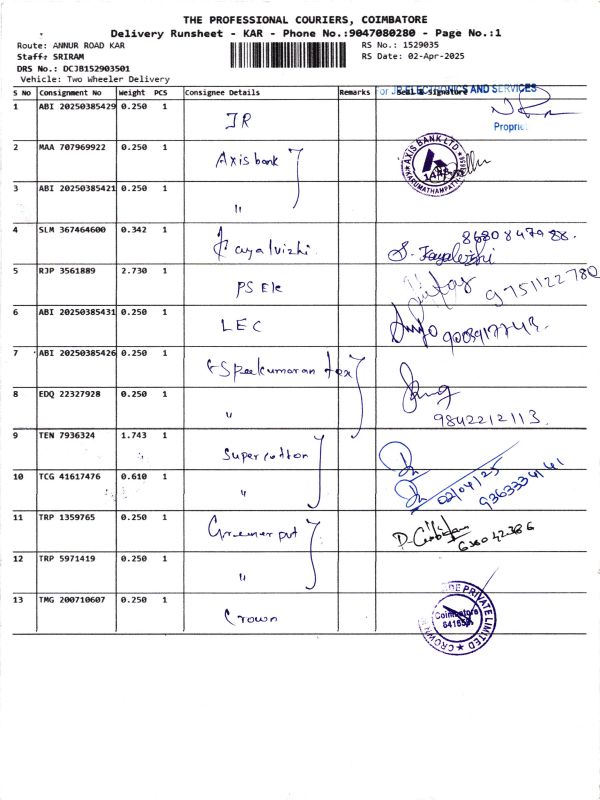 THE PROFESSIONAL COURIERS, COIMBATORE
Delivery Runsheet - KAR - Phone No.:9047080280 - Page No.:1
Route: ANNUR ROAD KAR
RS No.: 1529035
Staff: SRIRAM
RS Date: 02-Apr-2025
DRS No.: DC3B152903501
Vehicle: Two Wheeler Delivery
For JR ELECTRONICS AND SERVICES
S No Consignment No Weight PCS Consignee Details Remarks Seal & Signature
1 ABI 20250385429 0.250 1 JR
Propriet
2 MAA 707969922 0.250 1 Axis bank
AXIS BANK LTD
3 ABI 20250385421 0.250 1 "
4 SLM 367464600 0.342 1 Kayalvizhi 8680847988.
S. Kayalvizhi
5 RJP 3561889 2.730 1 PS Ele 9751122780
6 ABI 20250385431 0.250 1 LEC
7 ABI 20250385426 0.250 1 Sreekumaran tex
8 EDQ 22327928 0.250 1 " 9842212113.
9 TEN 7936324 1.743 1 Supercotton
10 TCG 41617476 0.610 1 " 02/04/25
11 TRP 1359765 0.250 1 Greenerput
12 TRP 5971419 0.250 1 "
13 TMG 200710607 0.250 1 Crown
CROWN PRIVATE LIMITED
Coimbatore